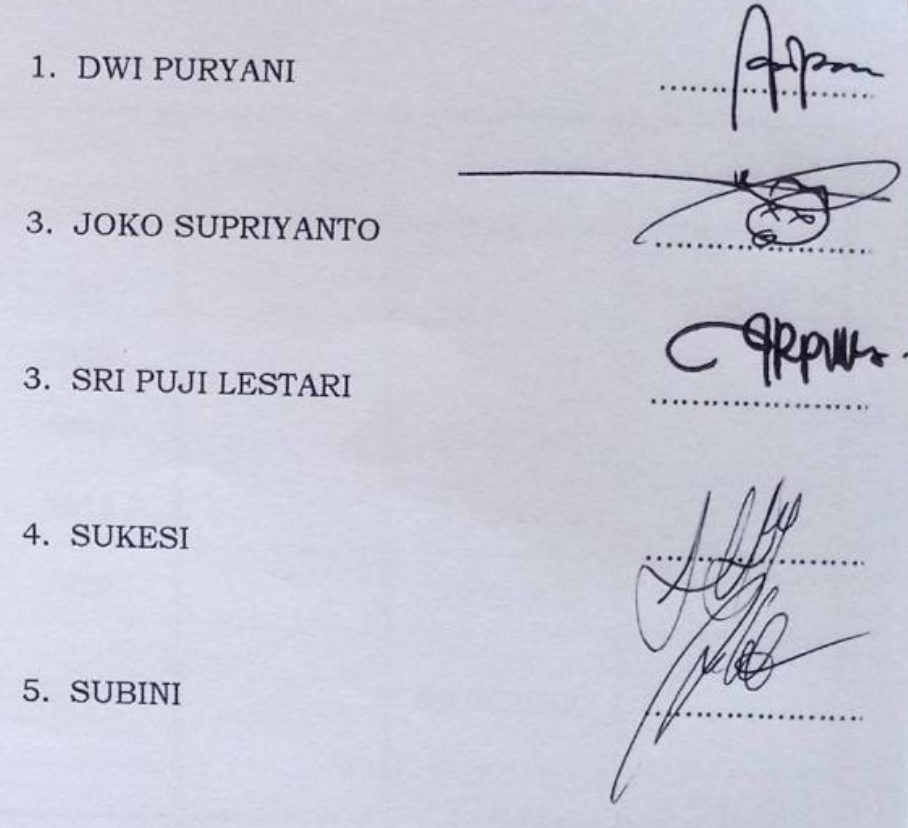 1. DWI PURYANI
3. JOKO SUPRIYANTO
3. SRI PUJI LESTARI
4. SUKESI
5. SUBINI